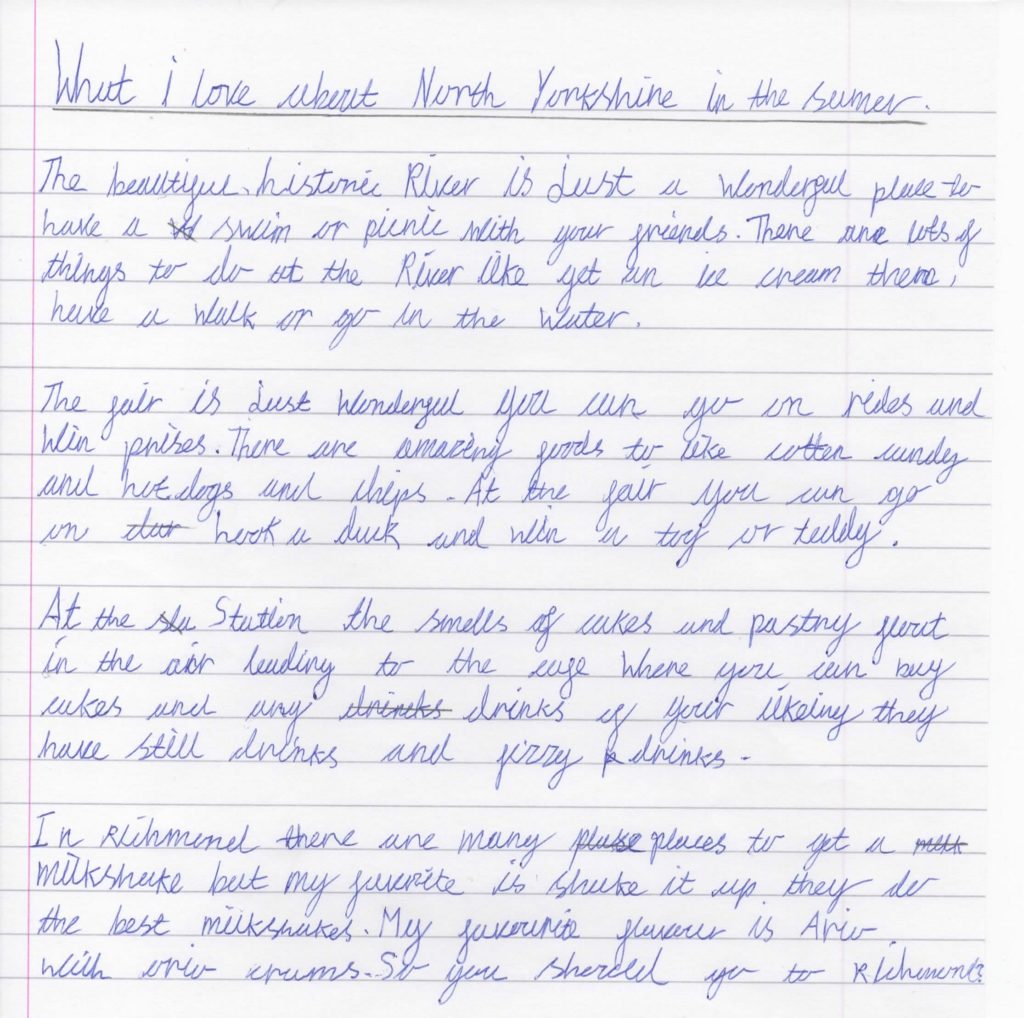 What i love about North Yorkshire in the sumer.
The beautiful, historic River is just a wonderful place to
have a swim or picnic with your friends. There are lots of
things to do at the River like get an ice cream there,
have a walk or go in the water.
The fair is just wonderful you can go on rides and
win prises. There are amazing foods to like cotten candy
and hot dogs and chips. At the fair you can go
on hook a duck and win a toy or teddy.
At the Station the smells of cakes and pastry flout
in the air leading to the cafe where you can buy
cakes and any drinks of your likeing they
have still drinks and fizzy drinks.
In Richmond there are many places to get a
milkshake but my favorite is shake it up they do
the best milkshakes. My favourite flavour is Ario
with orio crums. So you should go to Richmond?